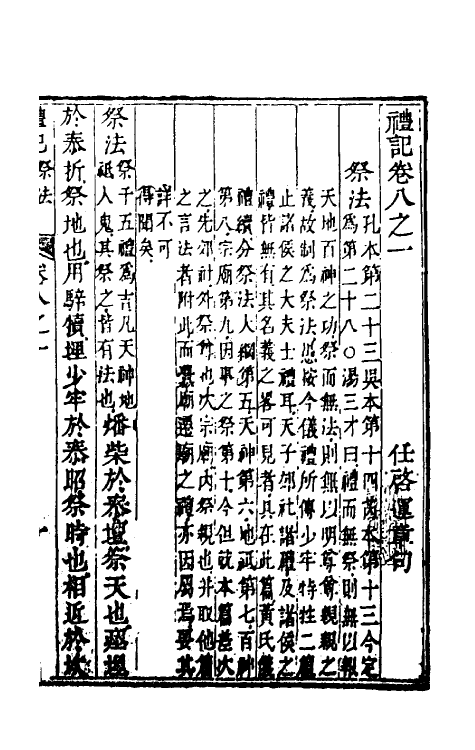 禮記卷八之一
任啓運章句
祭法孔本第二十三吳本第十四芮本第十三今定
為第二十八○湯三才曰禮而無祭則無以報
天地百神之功祭而無法則無以明尊尊親親之
義故制為祭法愚按今儀禮所傳少牢特牲二篇
止諸侯之大夫士禮耳天子郊社諸禮及諸侯之
禮皆無有其名義之畧可見者具在此篇黃氏儀
禮續分祭法大綱第五天神第六地祇第七百神
第八宗廟第九因事之祭第十今但就本篇差次
之先郊社外祭神也次宗廟内祭親也并取他篇
之言法者附此而釁廟遷廟之禮亦因屬焉要其
詳不可
得聞矣
祭法祭于五禮為吉凡天神地
祇人鬼其祭之皆有法也燔柴於泰壇祭天也瘞埋
於泰折祭地也用騂犢埋少牢於泰昭祭時也相近於坎
禮記祭法
卷八之一